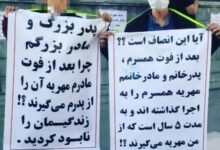 پدر بزرگ و
مادر بزرگم
چرا بعد از فوت
مادرم مهریه آن را
از پدرم می‌گیرند !!
زندگیمان را
نابود کردید .
آیا این انصاف است ؟؟
بعد از فوت همسرم ،
پدرخانم و مادرخانمم
مهریه همسرم را به
اجرا گذاشته اند و به
مدت ۵ سال است که از
من مهریه می‌گیرند !!؟